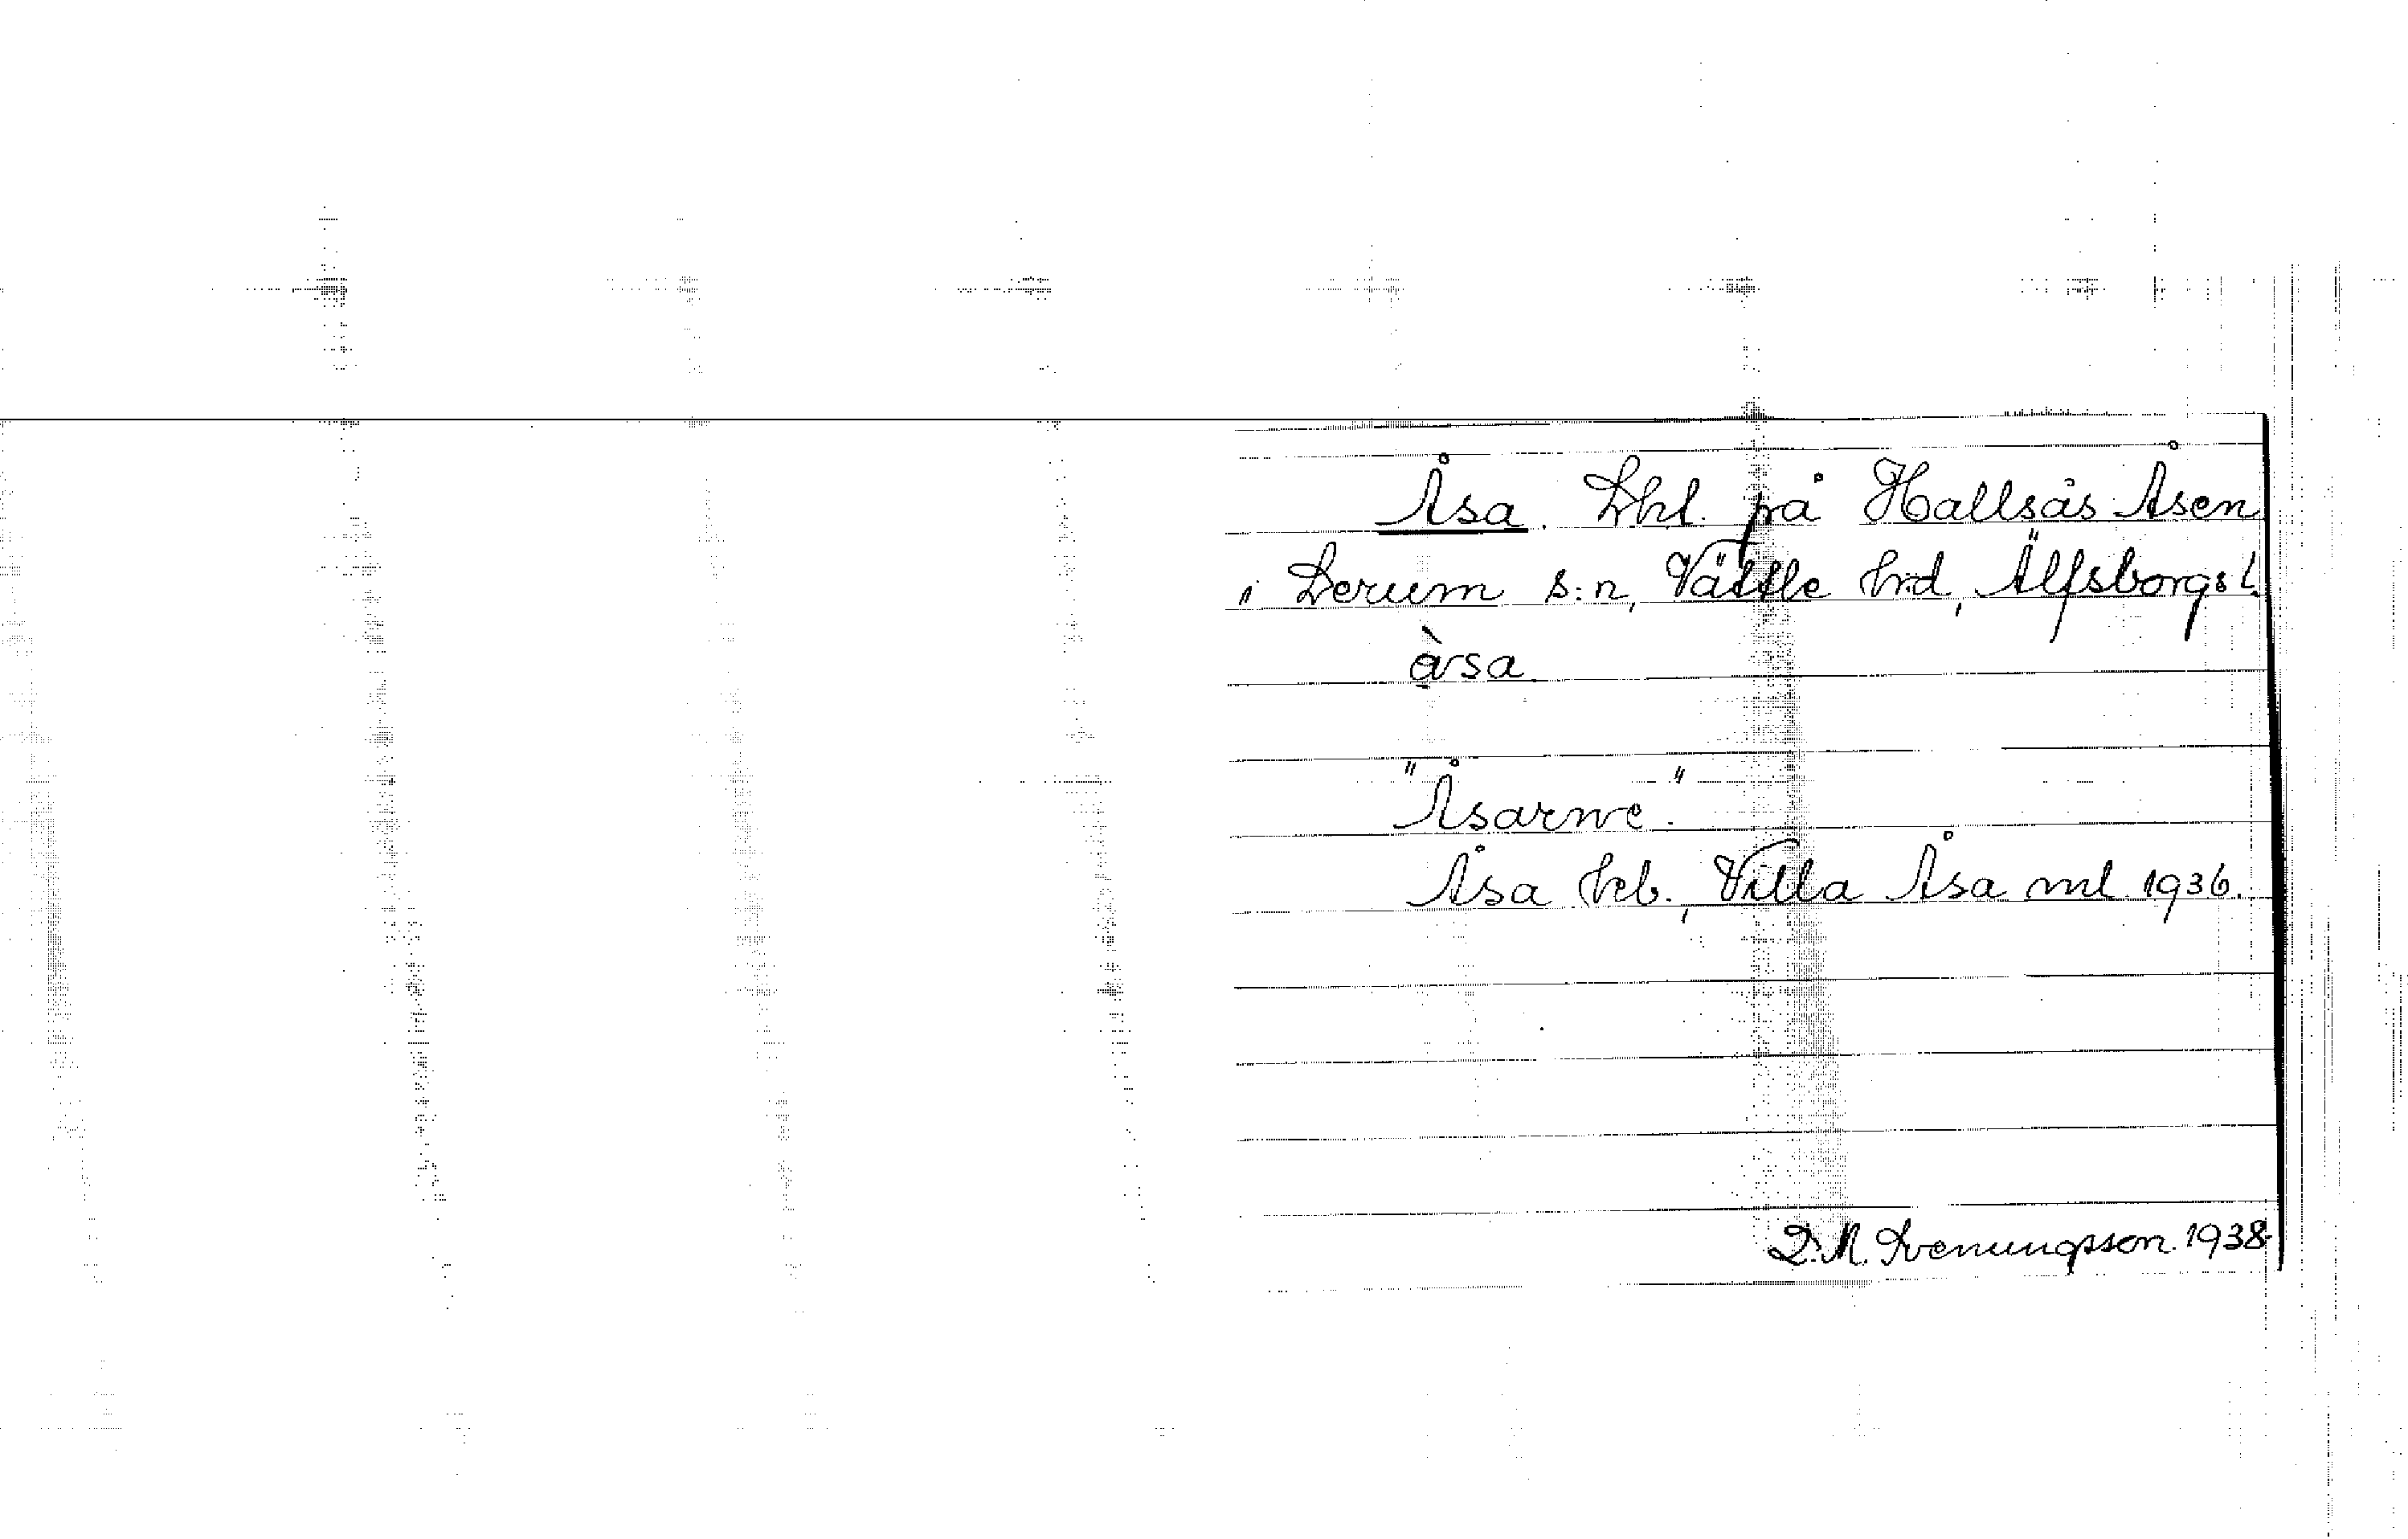 Åsa. Lhl. på Hallsås Åsen
i Lerum s:n, Vättle hrd, Älfsborgs l.
àsa
"Åsarne."
Åsa Veb., Villa Åsa ml 1936.
D. M. Svenungsson. 1938